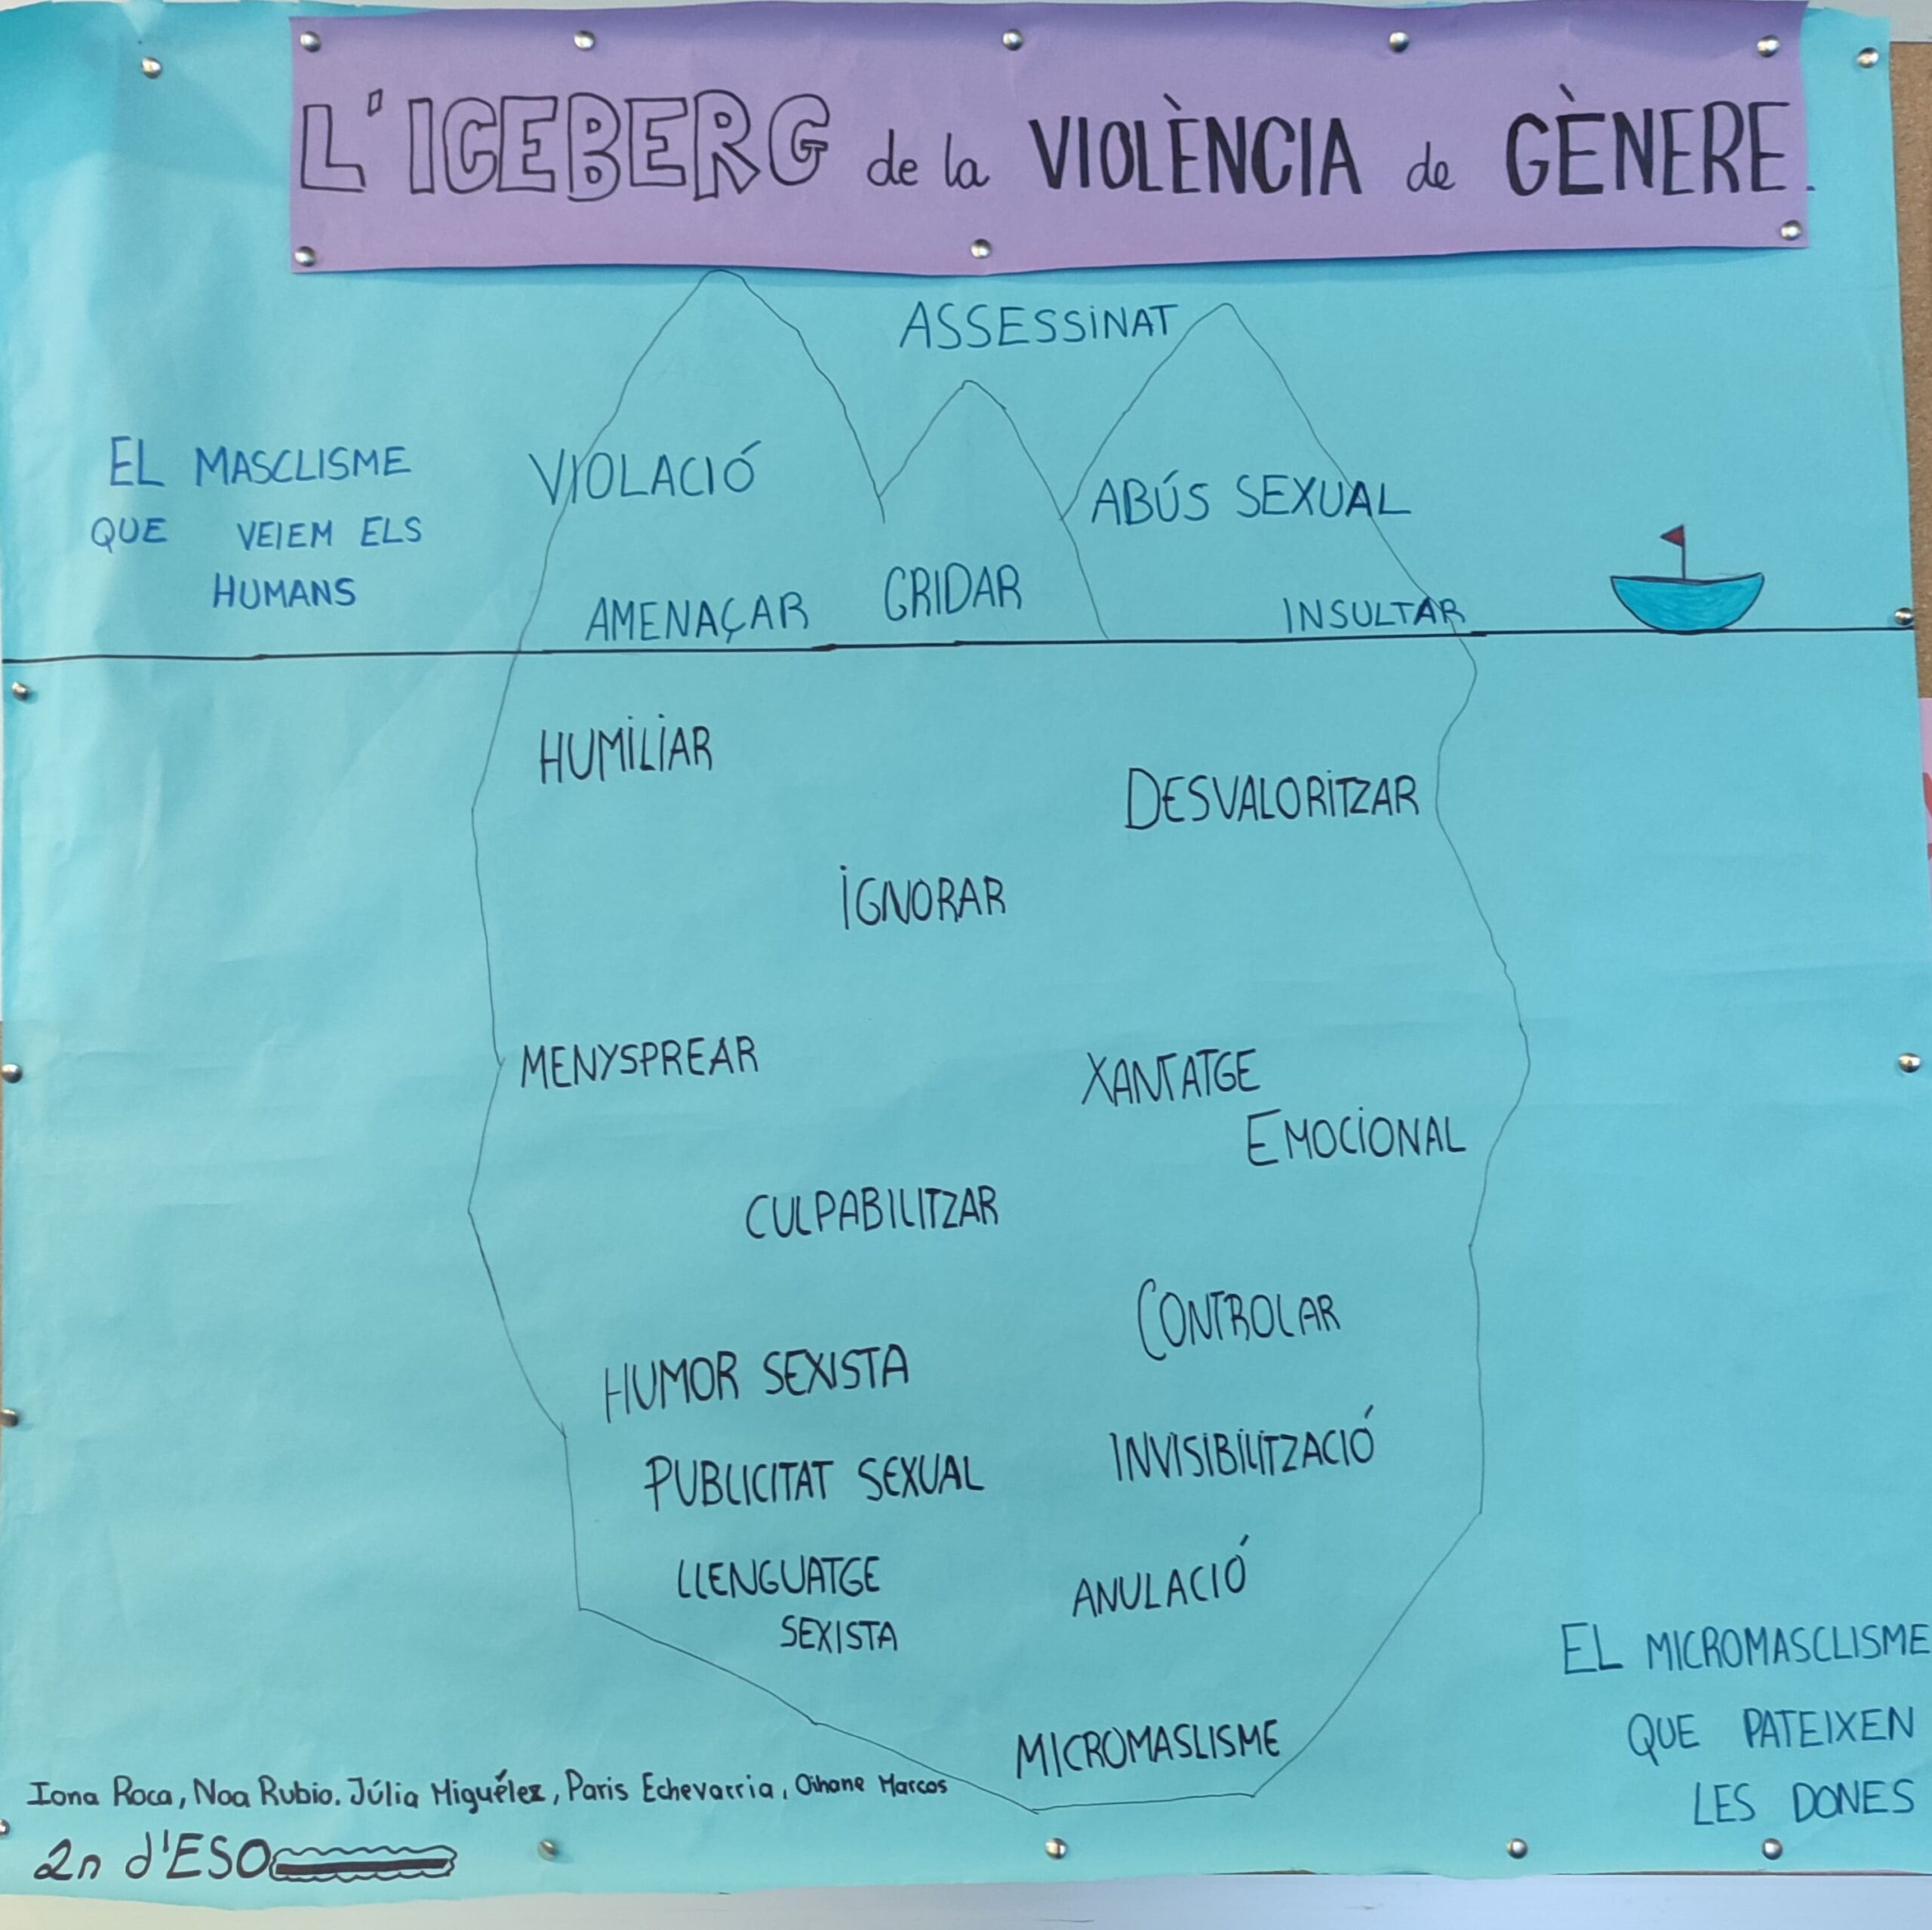 L'ICEBERG de la VIOLÈNCIA de GÈNERE.
ASSESSINAT
EL MASCLISME
QUE VEIEM ELS
HUMANS
VIOLACIÓ
ABÚS SEXUAL
AMENAÇAR
GRIDAR
INSULTAR
HUMILIAR
DESVALORITZAR
IGNORAR
MENYSPREAR
XANTATGE
EMOCIONAL
CULPABILITZAR
CONTROLAR
HUMOR SEXISTA
INVISIBILITZACIÓ
PUBLICITAT SEXUAL
LLENGUATGE
SEXISTA
ANULACIÓ
MICROMASLISME
EL MICROMASCLISME
QUE PATEIXEN
LES DONES
Iona Roca, Noa Rubio. Júlia Miguélez, Paris Echevarria, Oihane Marcos
2n d'ESO